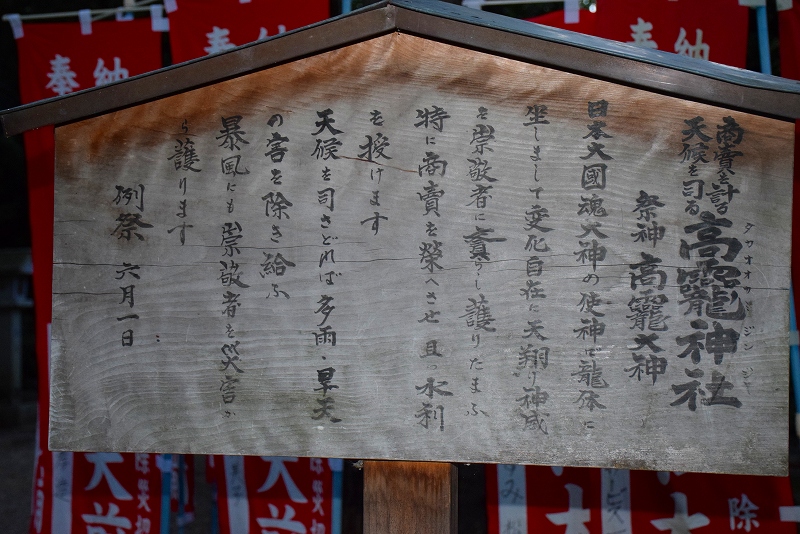 商賣を計る
天候を司る
高龗神社
タカオオカミジンジャ
祭神 高龗大神
日本大國魂大神の使神で龍体に
坐しまして変化自在に天翔り神威
を崇敬者に齎らし護りたまふ
特に商賣を榮へさせ且つ水利
を授けます
天候を司さどれば多雨・旱天
の害を除き給ふ
暴風にも崇敬者を災害か
ら護ります
例祭 六月一日
奉納
奉納
奉納